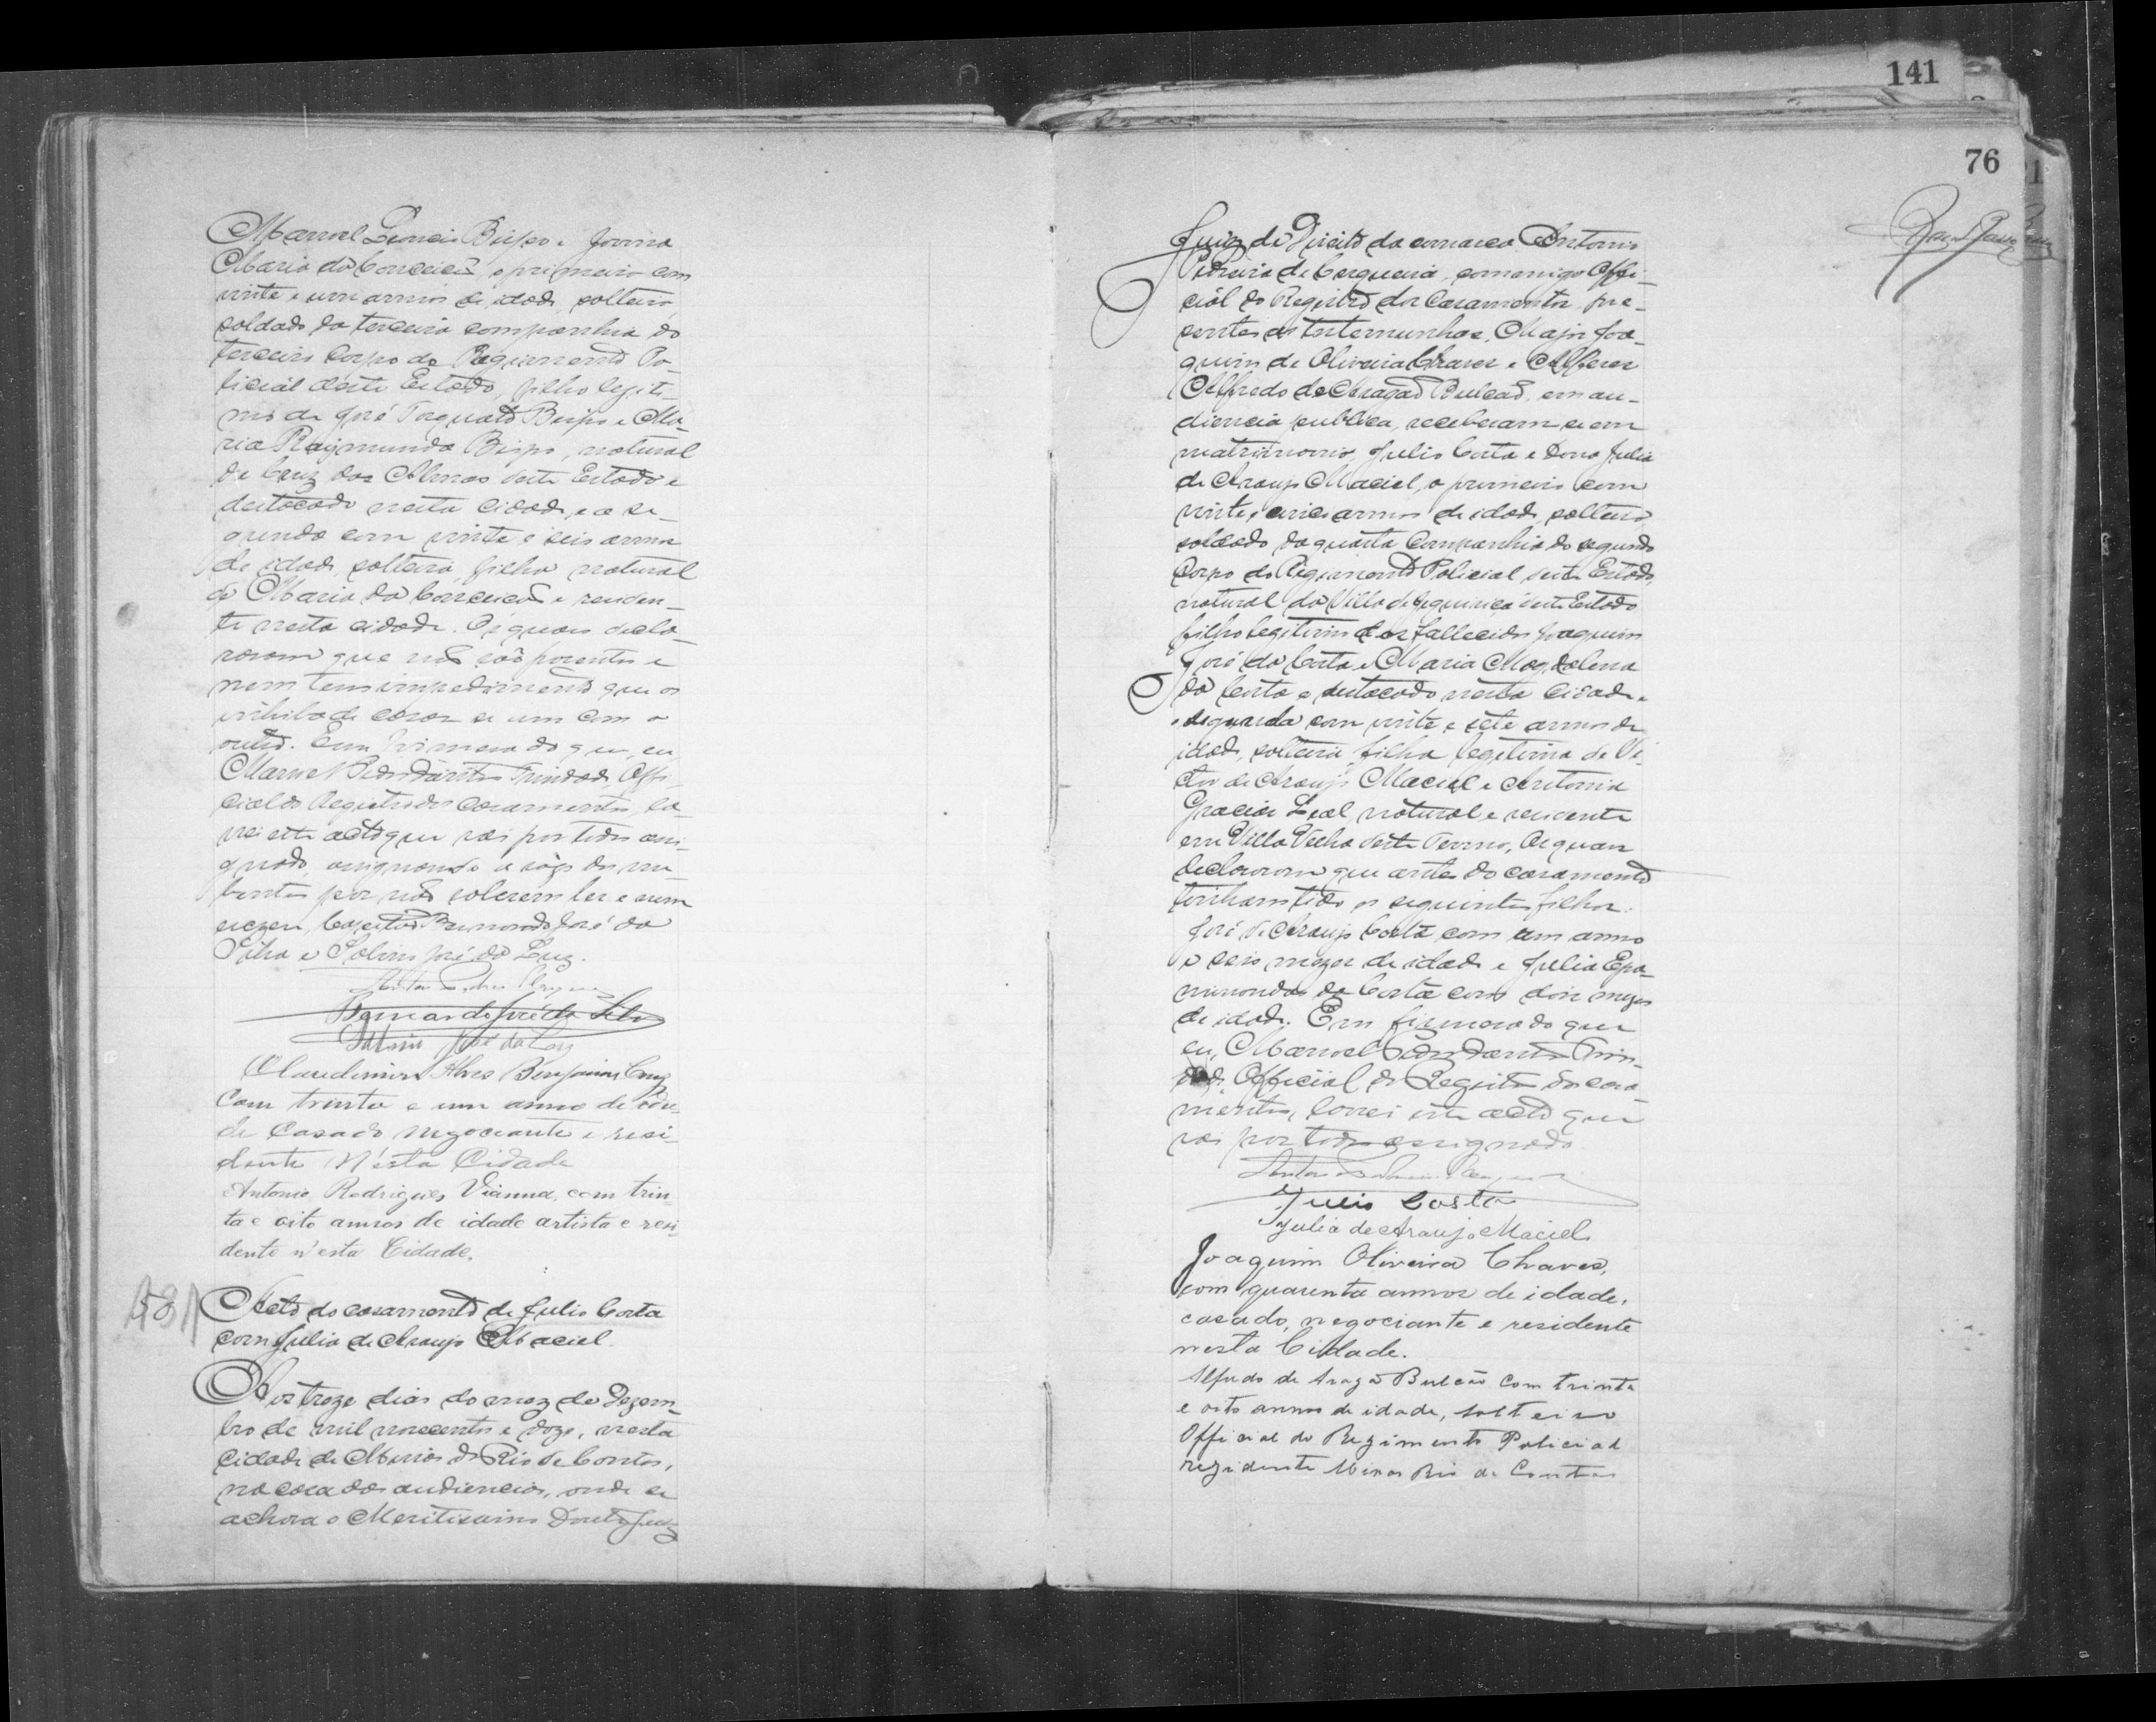 141
76
Manoel Leoncio Bispo e Jovina
Maria da Conceição, o primeiro com
vinte e um annos de idade, solteiro,
soldado da terceira companhia do
terceiro Corpo do Regimento Po-
licial deste Estado, filho legiti-
mo de José Torquato Bispo e Ma-
ria Raymunda Bispo, natural
de Cruz das Almas deste Estado e
destacado nesta Cidade, e a se-
gunda com vinte e seis annos
de idade, solteira, filha natural
de Maria da Conceição e residen-
te nesta cidade. Os quaes decla-
raram que não são parentes e
nem tem impedimento que os
inhiba de casar-se um com o
outro. Em firmesa do que, eu
Manoel Pedro Dantas Trindade, Offi-
cial do Registro dos Casamentos, la-
vrei este acto que vai por todos assi-
gnado, assignando a rôgo dos nu-
bentes por não saberem ler e nem
escrever, Bernardo José da
Silva e Salvino José da Luz.
Bernardo José da Silva
Salvino José da Luz
Claudemiro Alves Benjamim Cruz
Com trinta e um anno de ida-
de Casado Negociante e resi-
dente N'esta Cidade
Antonio Rodrigues Vianna, com trin-
ta e oito annos de idade artista e resi-
dente n'esta Cidade.
Acto do casamento de Julio Costa
com Julia de Araujo Maciel.
Aos treze dias do mez de Dezem-
bro de mil novecentos e doze, nesta
Cidade de Minas do Rio de Contas,
na casa das audiencias, onde se
achava o Meritissimo Doutor Juiz
Juiz de Direito da comarca Antonio
Pedreira de Cerqueira, commigo Offi-
cial do Registro dos Casamentos, pre-
sentes as testemunhas, Major Joa-
quim de Oliveira Chaves e Alferes
Alfredo de Aragão Bulcão, em au-
diencia publica, receberam-se em
matrimonio, Julio Costa e Dona Julia
de Araujo Maciel, o primeiro com
vinte e cinco annos de idade, solteiro,
soldado da quarta Companhia do segundo
Corpo do Regimento Policial deste Estado,
natural da Villa de Jequiriçá deste Estado
filho legitimo dos fallecidos Joaquim
José da Costa e Maria Magdalena
da Costa e destacado nesta Cidade e
a segunda com vinte e sete annos de
idade, solteira, filha legitima de Vi-
ctor de Araujo Maciel e Antonia
Gracia Leal, natural e residente
em Villa Velha deste Termo, Os quaes
declararam que antes do casamento
tinham tido os seguintes filhos:
José de Araujo Costa com um anno
e seis mezes de idade e Julia Epa-
minondas da Costa com dois mezes
de idade. Em firmesa do que
eu, Manoel Pedro Dantas Trin-
dade, Official do Registro dos casa-
mentos, lavrei este acto que
vai por todos assignado.
Julio Costa
Julia de Araujo Maciel
Joaquim Oliveira Chaves,
com quarenta annos de idade,
casado, negociante e residente
nesta Cidade.
Alfredo de Aragão Bulcão com trinta
e oito annos de idade, solteiro
Official do Regimento Policial
rezidente Minas Rio de Contas